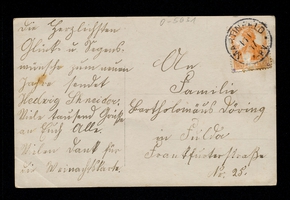 O-5021
die Herzlichsten
Glück- u. Segens
wünsche zum neuen
Jahre sendet
Hedwig Schneider.
Viele tausend Grüße
an Euch Alle.
Vielen Dank für
die Weinachtskarte.
An
Familie
Bartholomäus Döring
in Fulda
Frankfurterstraße
No. 25.